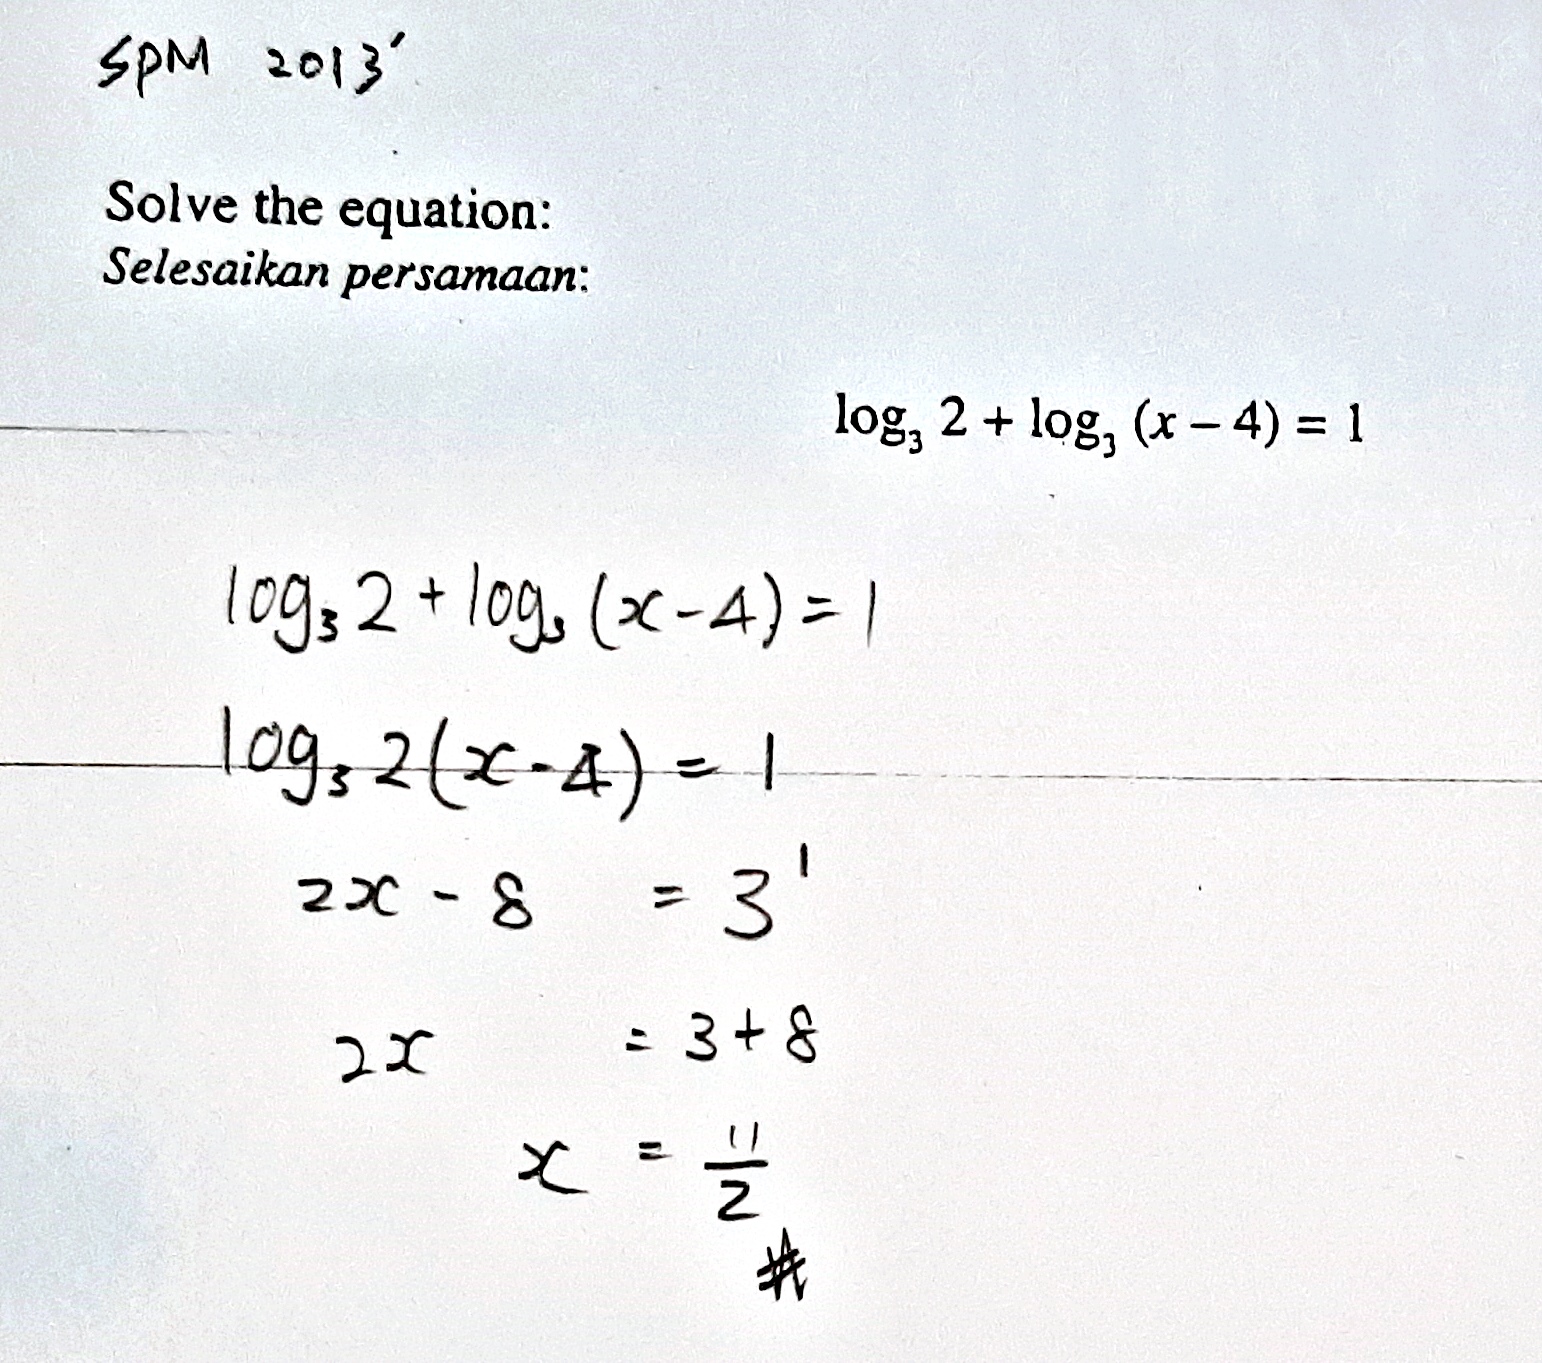 SPM 2013'
Solve the equation:
Selesaikan persamaan:
log₃ 2 + log₃ (x – 4) = 1
log₃ 2 + log₃ (x - 4) = 1
log₃ 2(x - 4) = 1
2x - 8 = 3¹
2x = 3 + 8
x = 11/2
#